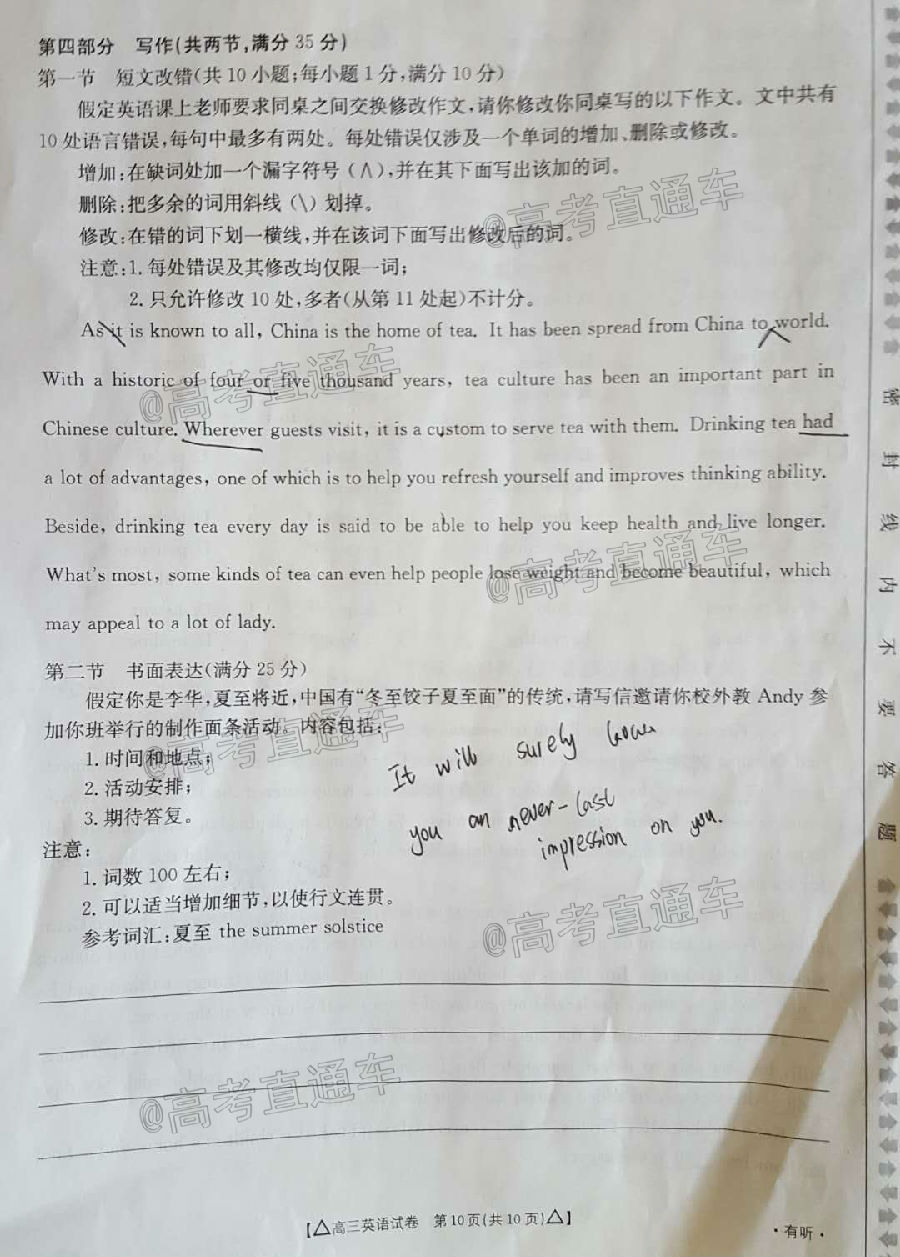 第四部分 写作(共两节,满分 35 分)
第一节 短文改错(共 10 小题;每小题 1 分,满分 10 分)
假定英语课上老师要求同桌之间交换修改作文,请你修改你同桌写的以下作文。文中共有
10 处语言错误,每句中最多有两处。每处错误仅涉及一个单词的增加、删除或修改。
增加:在缺词处加一个漏字符号(∧),并在其下面写出该加的词。
删除:把多余的词用斜线(\)划掉。
修改:在错的词下划一横线,并在该词下面写出修改后的词。
注意:1. 每处错误及其修改均仅限一词;
2. 只允许修改 10 处,多者(从第 11 处起)不计分。
As it is known to all, China is the home of tea. It has been spread from China to world.
With a historic of four or five thousand years, tea culture has been an important part in
Chinese culture. Wherever guests visit, it is a custom to serve tea with them. Drinking tea had
a lot of advantages, one of which is to help you refresh yourself and improves thinking ability.
Beside, drinking tea every day is said to be able to help you keep health and live longer.
What's most, some kinds of tea can even help people lose weight and become beautiful, which
may appeal to a lot of lady.
第二节 书面表达(满分 25 分)
假定你是李华,夏至将近,中国有“冬至饺子夏至面”的传统,请写信邀请你校外教 Andy 参
加你班举行的制作面条活动。内容包括:
1. 时间和地点;
2. 活动安排;
3. 期待答复。
It will surely
you an never-last
impression on you.
注意:
1. 词数 100 左右;
2. 可以适当增加细节,以使行文连贯。
参考词汇:夏至 the summer solstice
【△高三英语试卷 第 10 页(共 10 页)△】
·有听·
密封线内不要答题
@高考直通车
@高考直通车
@高考直通车
@高考直通车
@高考直通车
@高考直通车
@高考直通车